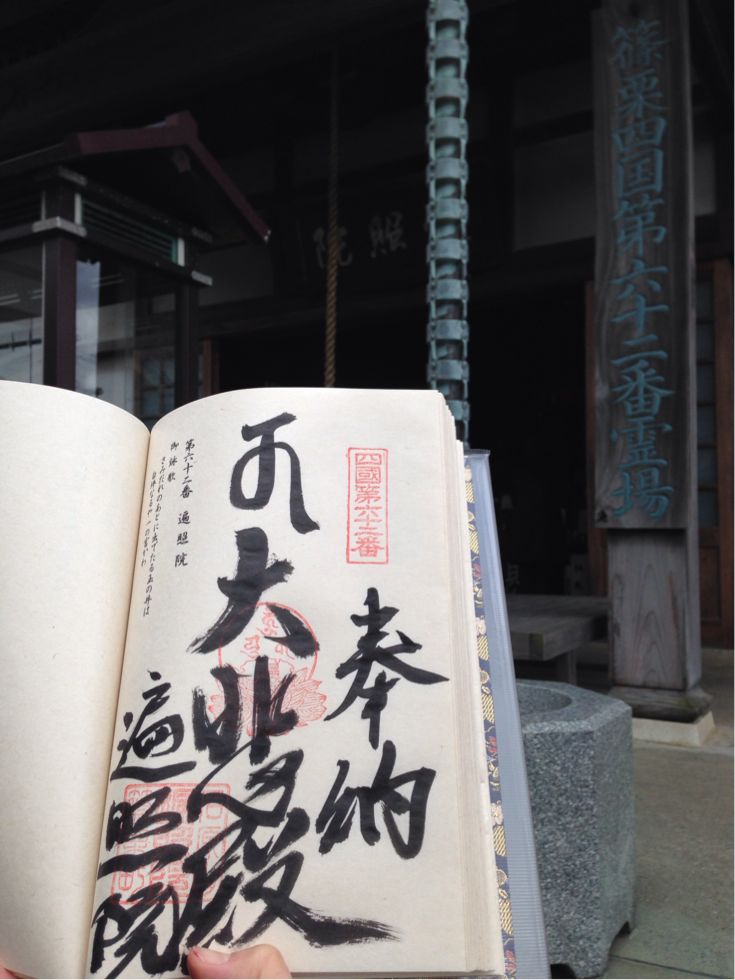 篠栗四国第六十二番霊場
照院
四國第六十二番
奉納
大悲殿
遍照院
第六十二番 遍照院
御詠歌
さみだれのあとに出でたる玉の井は
白坪なるや一の宮かわ